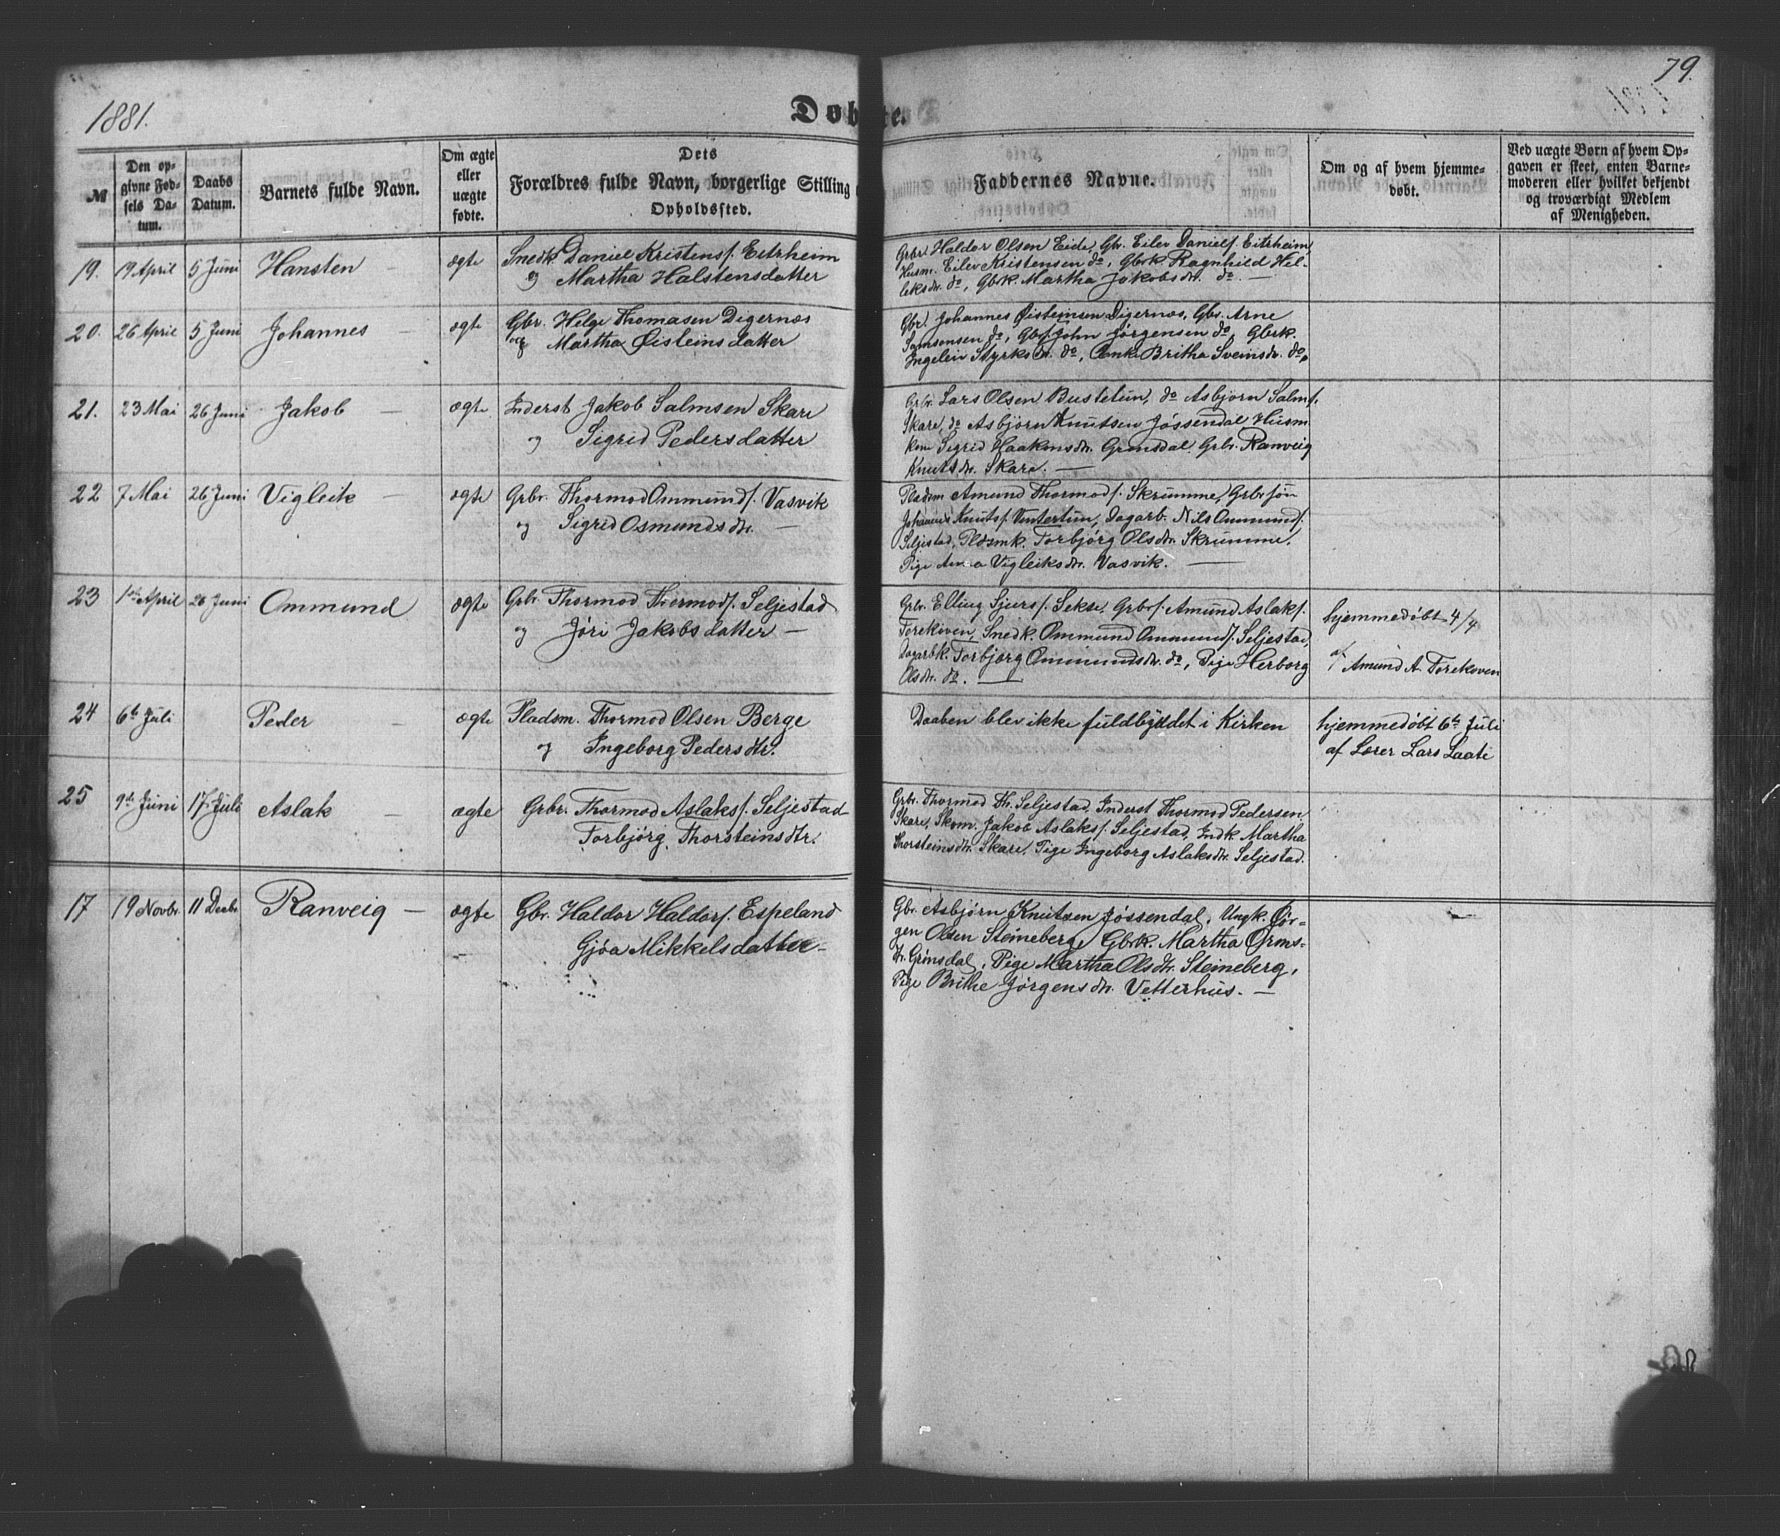 1881.
79.
Døbte.
№
Den opgivne Fødsels Datum.
Daabs Datum.
Barnets fulde Navn.
Om ægte eller uægte fødte.
Dets Forældres fulde Navn, borgerlige Stilling
Opholdssted.
Faddernes Navne.
Om og af hvem hjemmedøbt.
Ved uægte Børn af hvem Opgaven er skeet, enten Barnemoderen eller hvilket bekjendt og troværdigt Medlem af Menigheden.
19. 19 April 5 Juni Hansten — ægte Snedk Daniel Kristens/. Eitrheim
og Martha Halstensdatter
Grbr/ Haldor Olsen Eide, Gbr. Eilev Daniels/ Eitrheim
Husm. Eilev Kristensen do, Gbrk Ragnhild Hel-
leksdtr. do, Gbrk. Martha Jakobsdtr. do. —
20. 26 April 5 Juni Johannes — ægte Gbr. Helge Thomasen Digernæs
og Martha Øisteinsdatter
Gbr/ Johannes Øisteinsen Digernæs, Gbr. Arne
Samsonsen do, Gbrs/ John Jørgensen do, Gbrk.
Ingeleiv Styrksdtr. do, Enke Britha Sveinsdtr. do.
21. 23 Mai 26 Juni Jakob — ægte Inderst Jakob Salmsen Skare
og Sigrid Pedersdatter
Grbr. Lars Olsen Bustetun, do Asbjørn Salms/.
Skare, do Asbjørn Knutsen Jøssendal Husm
kone Sigrid Haakonsdtr. Grønsdal, Grbr. Ranveig
Knutsdtr. Skare. —
22 7 Mai 26 Juni Vigleik — ægte Grbr. Thormod Ommunds/. Vasvik
og Sigrid Osmundsdtr. —
Pladsm Amund Thormods/. Skrumme, Grbrsøn
Johannes Knuts/. Vintertun, Dagarb. Nils Ommunds/.
Seljestad, Pldsmk. Torbjørg Olsdtr. Skrumme,
Pige Anna Vigleiksdtr. Vasvik. —
23 1ste April 26 Juni Ommund ægte Grbr. Thormod Thormods/. Seljestad
og Jøri Jakobsdatter —
Grbr. Elling Sjurs/. Sekse, Grbrs/. Amund Aslaks/.
Torekoven, Snedk. Ommund Ommunds/. Seljestad,
Dagarbk. Torbjørg Ommundsdtr. do, Pige Herborg
Olsdtr. do. —
hjemmedøbt 4/4
af Amund A. Torekoven
24 6te Juli Peder — ægte Pladsm. Thormod Olsen Berge
og Ingeborg Pedersdtr.
Daaben blev ikke fuldbyrdet i Kirken
hjemmedøbt 6te Juli
af Lærer Lars Laate
25 9de Juni 17. Juli Aslak — ægte Grbr. Thormod Aslaks/. Seljestad
Torbjørg Thorsteinsdtr.
Grbr. Thormod Th. Seljestad, Inderst Thormod Pedersen
Skare, Skom. Jakob Aslaks/. Seljestad, Indk. Martha
Thorsteinsdtr. Skare, Pige Ingeborg Aslaksdtr. Seljestad.
17 19 Novbr. 11 Decbr. Ranveig — ægte Gbr. Haldor Haldors/. Espeland
Gjøa Mikkelsdatter —
Gbr. Asbjørn Knutsen Jøssendal, Ungk. Jør-
gen Olsen Steineberge Gbrk. Martha Orms-
dtr. Grønsdal, Pige Martha Olsdtr. Steineberg,
Pige Brithe Jørgensdtr. Vetterhus. —